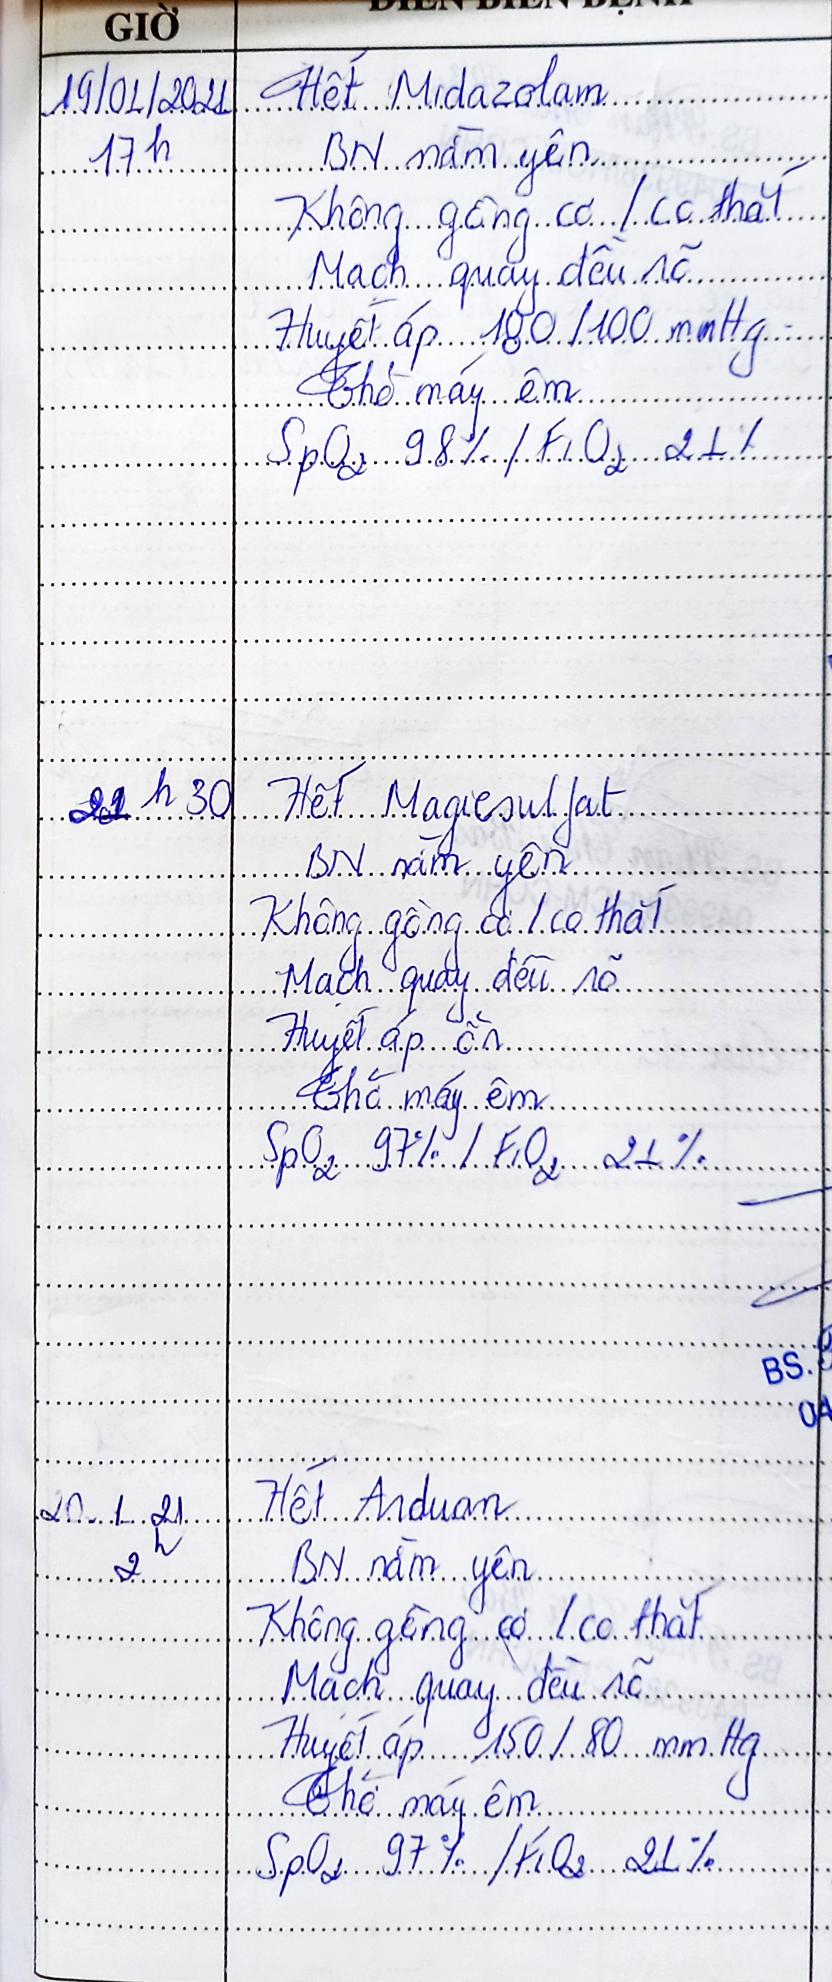 GIỜ
DIỄN BIẾN BỆNH
19/01/2021 Hết Midazolam
17h BN nằm yên
Không gồng cơ / co thắt
Mạch quay đều rõ
Huyết áp 180/100 mmHg
Thở máy êm
SpO2 98% / FiO2 21%
h 30 Hết Magiesulfat
BN nằm yên
Không gồng cơ / co thắt
Mạch quay đều rõ
Huyết áp ổn
Thở máy êm
SpO2 97% / FiO2 21%
BS.
20. 1. 21 Hết Arduan
2h BN nằm yên
Không gồng cơ / co thắt
Mạch quay đều rõ
Huyết áp 150/80 mmHg
Thở máy êm
SpO2 97% / FiO2 21%